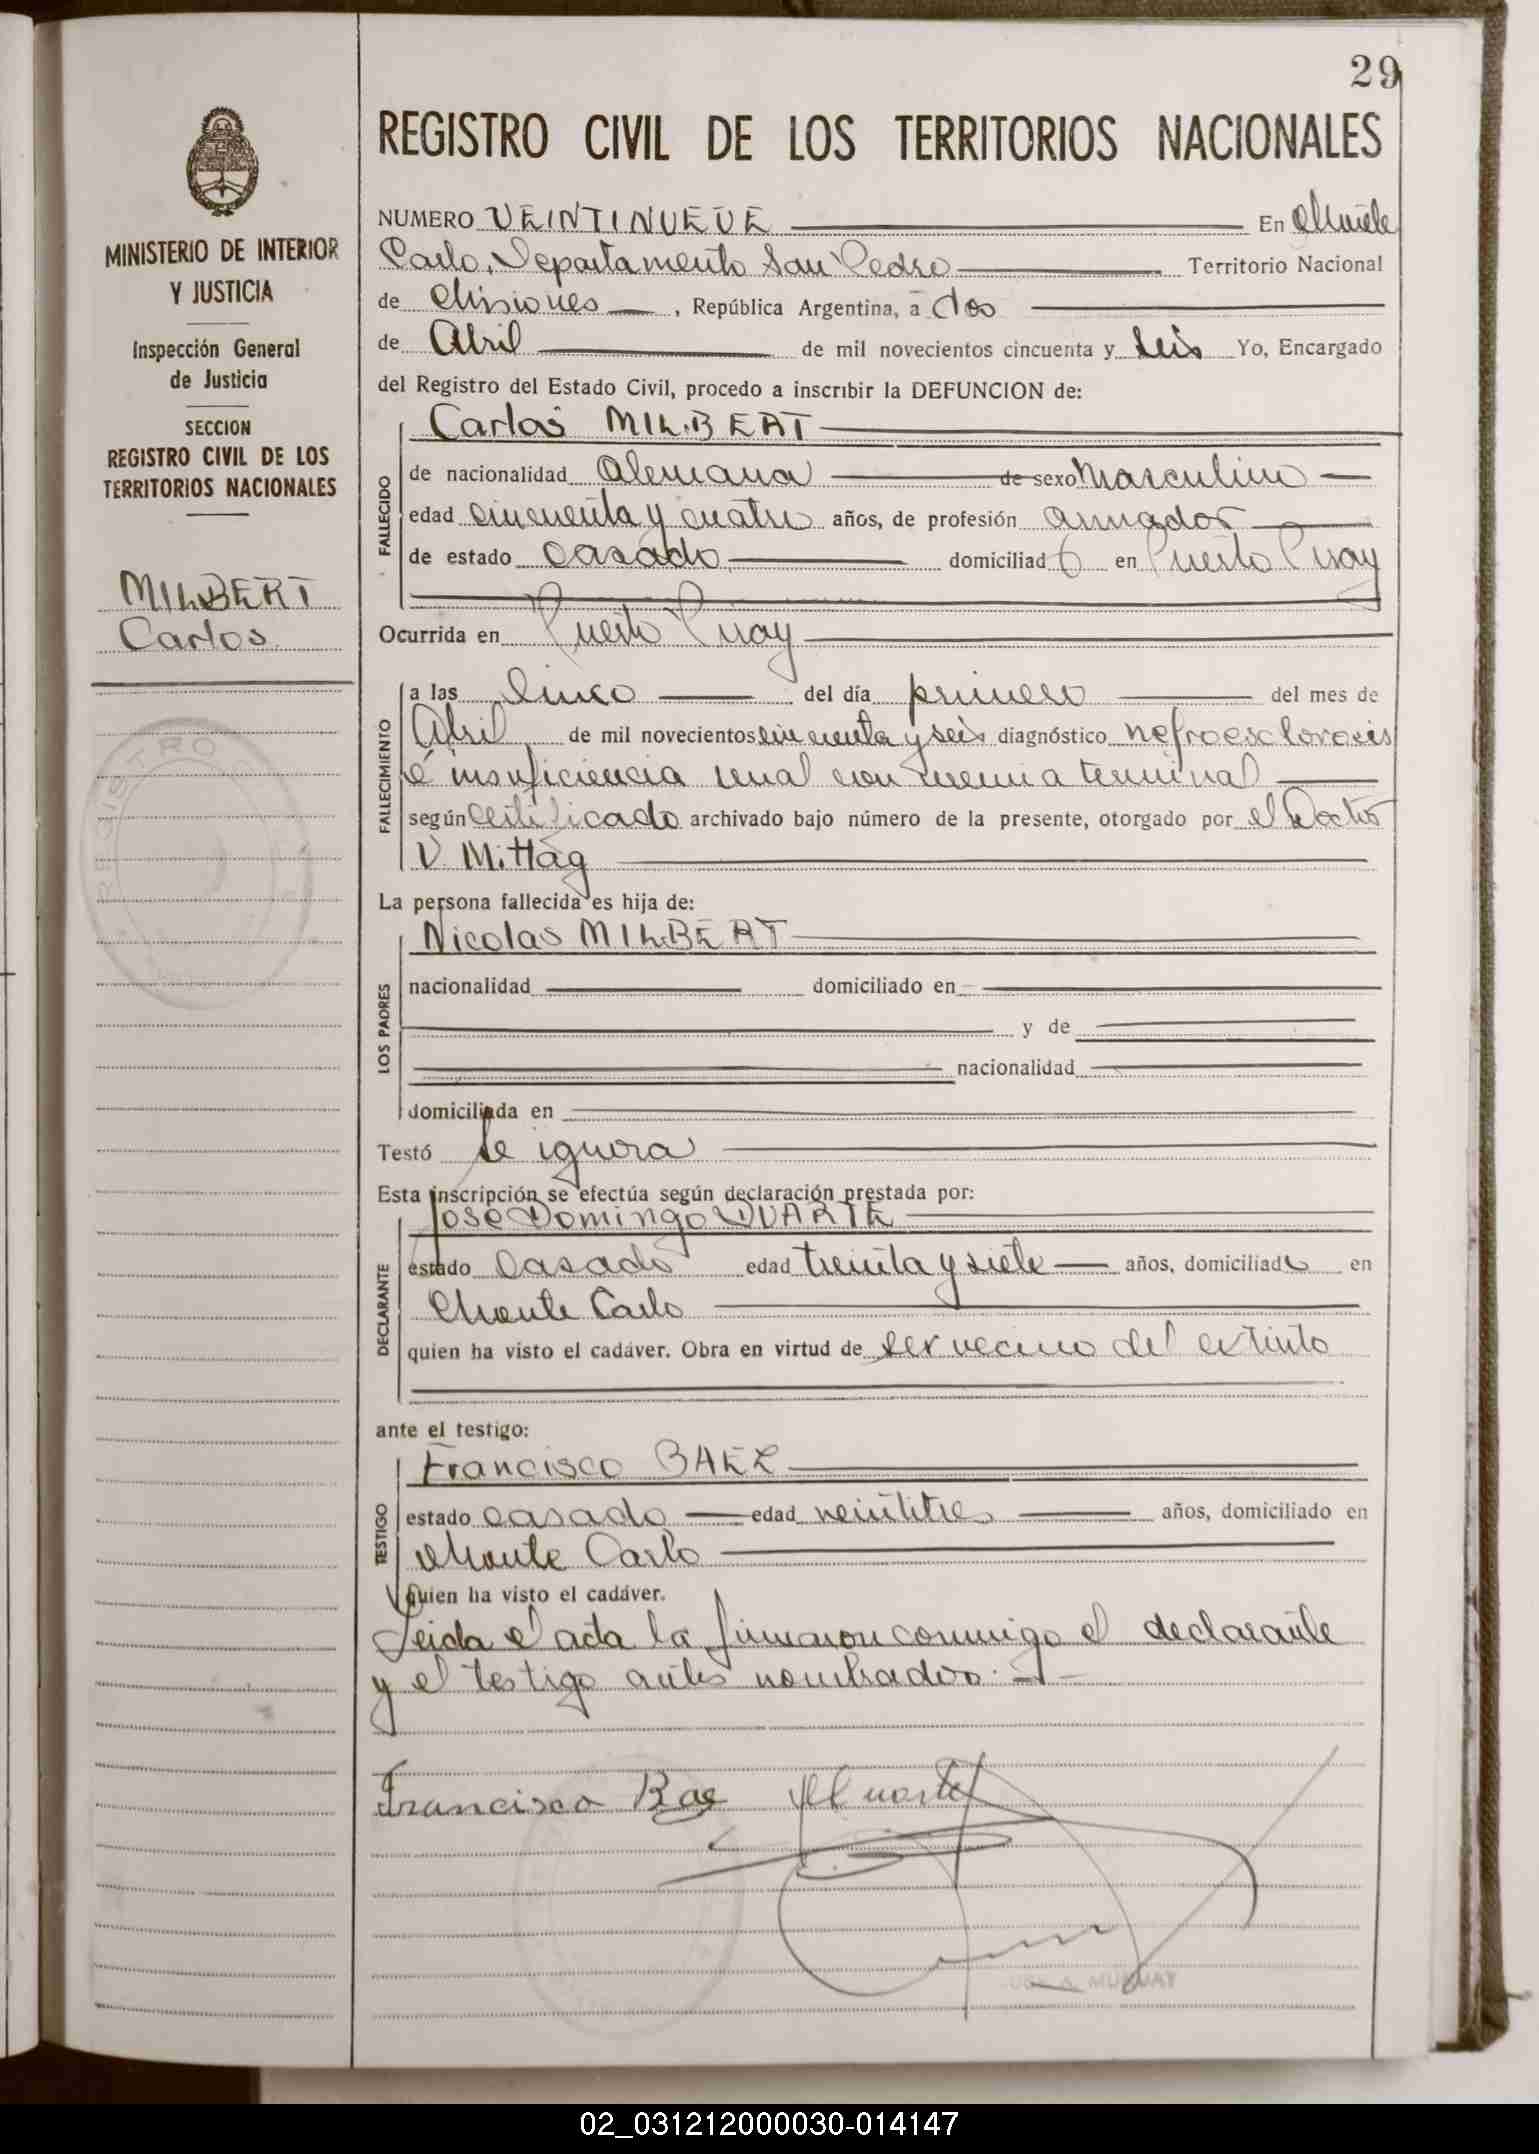 29
REGISTRO CIVIL DE LOS TERRITORIOS NACIONALES
MINISTERIO DE INTERIOR
Y JUSTICIA
Inspección General
de Justicia
SECCION
REGISTRO CIVIL DE LOS
TERRITORIOS NACIONALES
MILBERT
Carlos
REGISTRO
NUMERO VEINTINUEVE En Monte
Carlo, Departamento San Pedro Territorio Nacional
de Misiones, República Argentina, a dos
de Abril de mil novecientos cincuenta y seis Yo, Encargado
del Registro del Estado Civil, procedo a inscribir la DEFUNCION de:
Carlos MILBERT
FALLECIDO
de nacionalidad alemana de sexo masculino
edad cincuenta y cuatro años, de profesión armador
de estado casado domiciliado en Puerto Piray
Ocurrida en Puerto Piray
FALLECIMIENTO
a las cinco del día primero del mes de
Abril de mil novecientos cincuenta y seis diagnóstico nefroesclorosis
é insuficiencia renal con uremia terminal
según certificado archivado bajo número de la presente, otorgado por el Doctor
V. Mittag
La persona fallecida es hija de:
LOS PADRES
Nicolas MILBERT
nacionalidad domiciliado en
y de
nacionalidad
domiciliada en
Testó se ignora
Esta inscripción se efectúa según declaración prestada por:
DECLARANTE
José Domingo DUARTE
estado casado edad treinta y siete años, domiciliado en
Monte Carlo
quien ha visto el cadáver. Obra en virtud de ser vecino del extinto
ante el testigo:
TESTIGO
Francisco BAEZ
estado casado edad veintitres años, domiciliado en
Monte Carlo
quien ha visto el cadáver.
Leida el acta la firmaron conmigo el declarante
y el testigo antes nombrados.
Francisco Bae
02_031212000030-014147